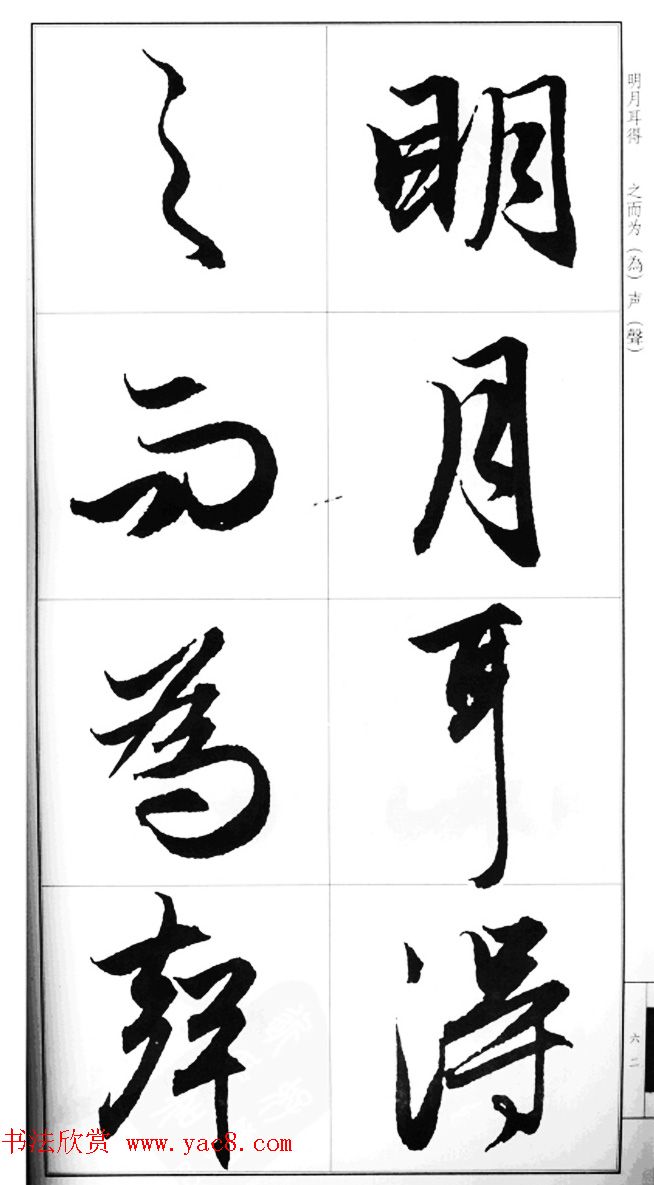 明月耳得
之而為聲
明月耳得　之而为(為)声(聲)
六二
书法欣赏 www.yac8.com